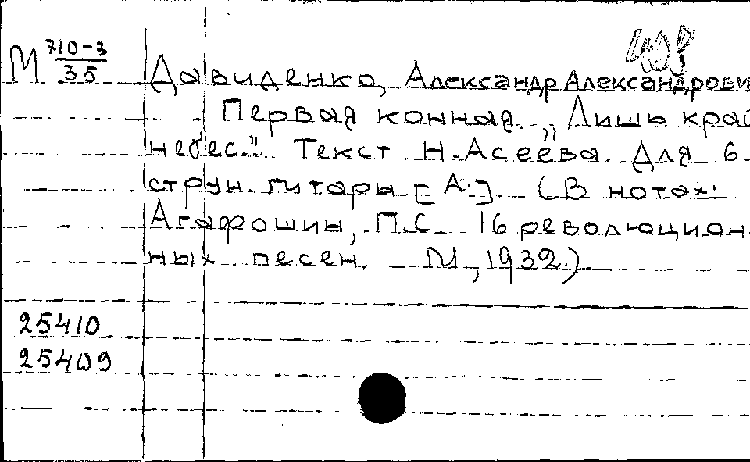 М 710-3/35
Давиденко, Александр Александрови
Первая конная. „Лишь край
небес." Текст Н. Асеева. Для 6
струн. гитары [А.]. (В нотах:
Агафошин, П.С. 16 революцион-
ных песен. М., 1932.)
25410
25409